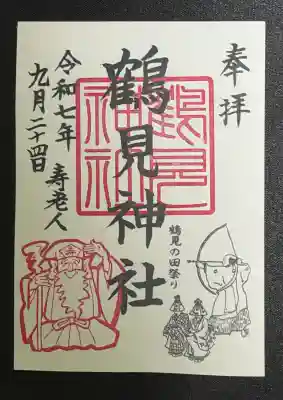 奉拝
鶴見神社
鶴見神社
鶴見の田祭り
寿老人
令和七年
九月二十四日